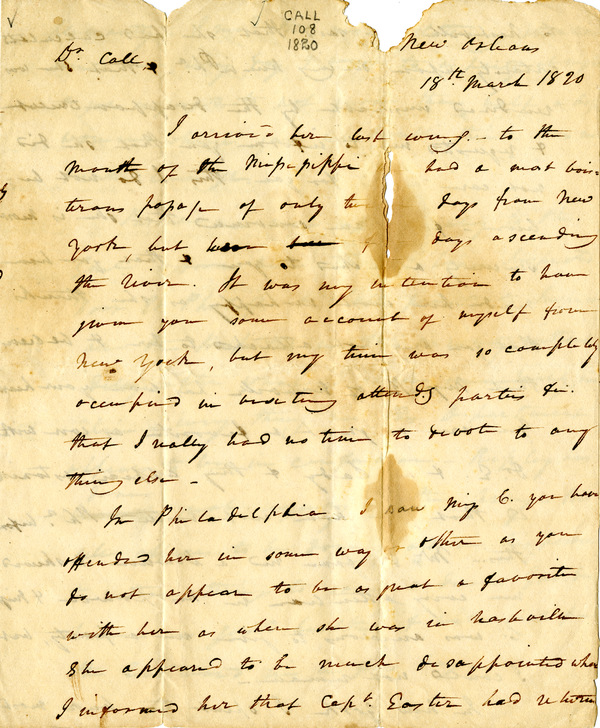 CALL
108
1820
New Orleans
Dr. Call,
18th March 1820
I arrivd here last eveng. - to the
mouth of the Missisippi had a most bois=
terous passage of only days from New
York, but days ascending
the river. It was my intention to have
given you some account of myself from
New York, but my time was so completely
occupied in visiting attendg parties &c.
that I really had no time to devote to any
thing else -
In Philadelphia I saw Miss C. you have
offended her in some way or other as you
do not appear to be as great a favorite
with her as when she was in Nashville
She appeared to be much disappointed when
I informed her that Capt. Easter had return